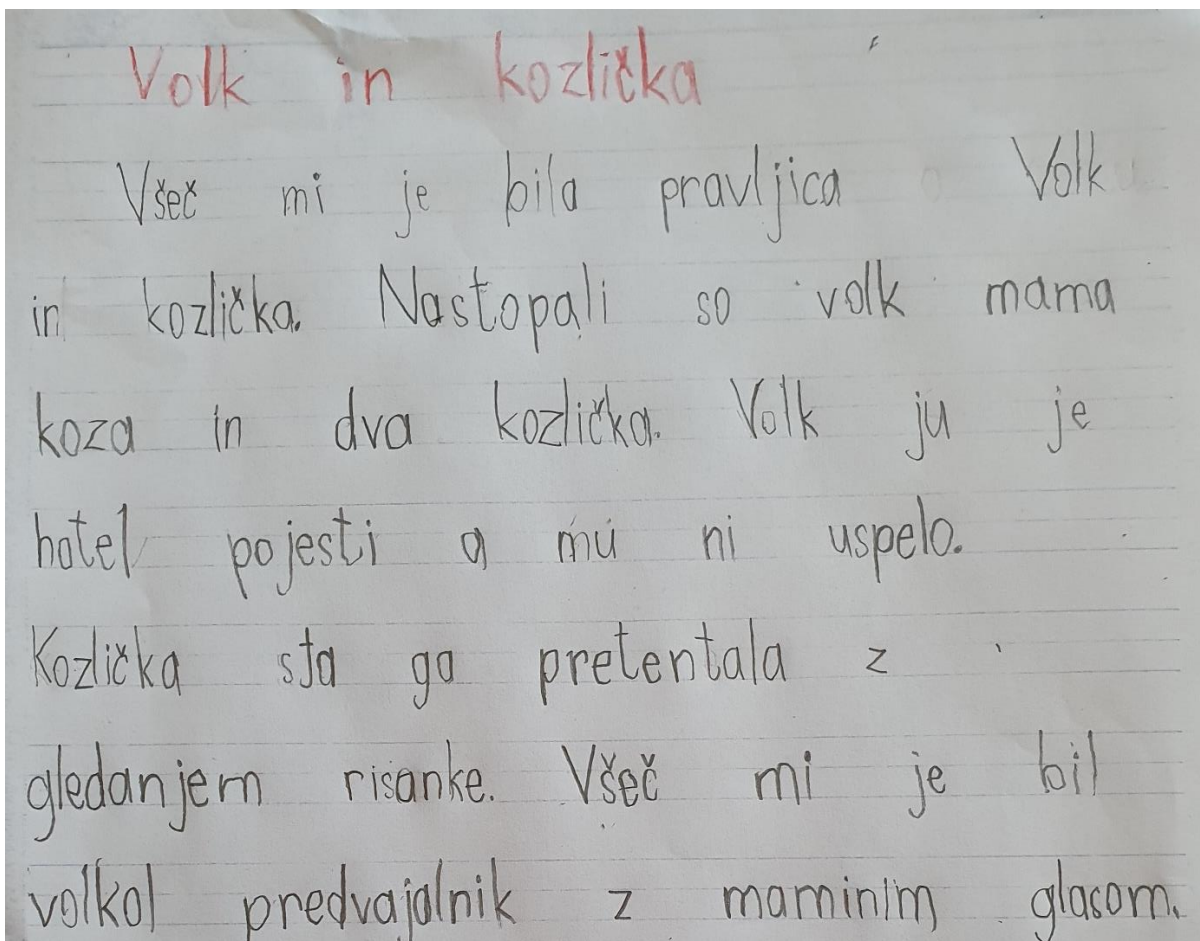 Volk in kozlička
Všeč mi je bila pravljica Volk
in kozlička. Nastopali so volk mama
koza in dva kozlička. Volk ju je
hotel pojesti a mu ni uspelo.
Kozlička sta ga pretentala z
gledanjem risanke. Všeč mi je bil
predvajalnik z maminim glasom.